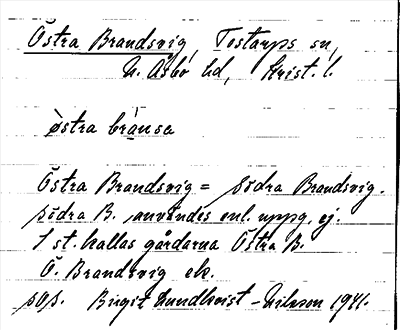 Östra Brandsvig, Tostarps sn,
N. Åsbo hd, Krist. l.
östra bränsa
Östra Brandsvig = Södra Brandsvig.
Södra B. användes enl. uppg. ej.
I st. kallas gårdarna Östra B.
Ö. Brandsvig etc.
sos. Birgit Lundkvist-Nilsson 1941.